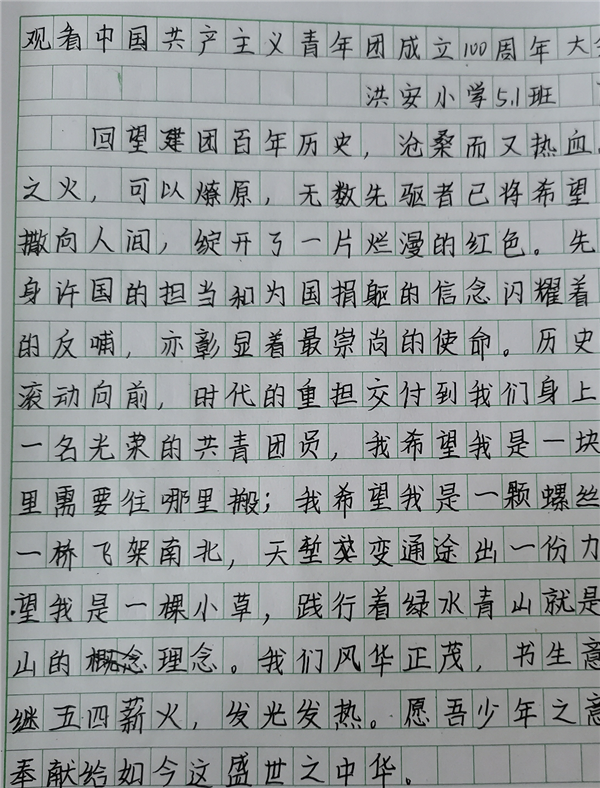 观看中国共产主义青年团成立100周年大
洪安小学5.1班
回望建团百年历史，沧桑而又热血。
之火，可以燎原，无数先驱者已将希望
撒向人间，绽开了一片烂漫的红色。先
身许国的担当和为国捐躯的信念闪耀着
的反哺，亦彰显着最崇尚的使命。历史
滚动向前，时代的重担交付到我们身上
一名光荣的共青团员，我希望我是一块
里需要往哪里搬；我希望我是一颗螺丝
一桥飞架南北，天堑变通途出一份力
望我是一棵小草，践行着绿水青山就是
山的理念。我们风华正茂，书生意
继五四薪火，发光发热。愿吾少年之意
奉献给如今这盛世之中华。